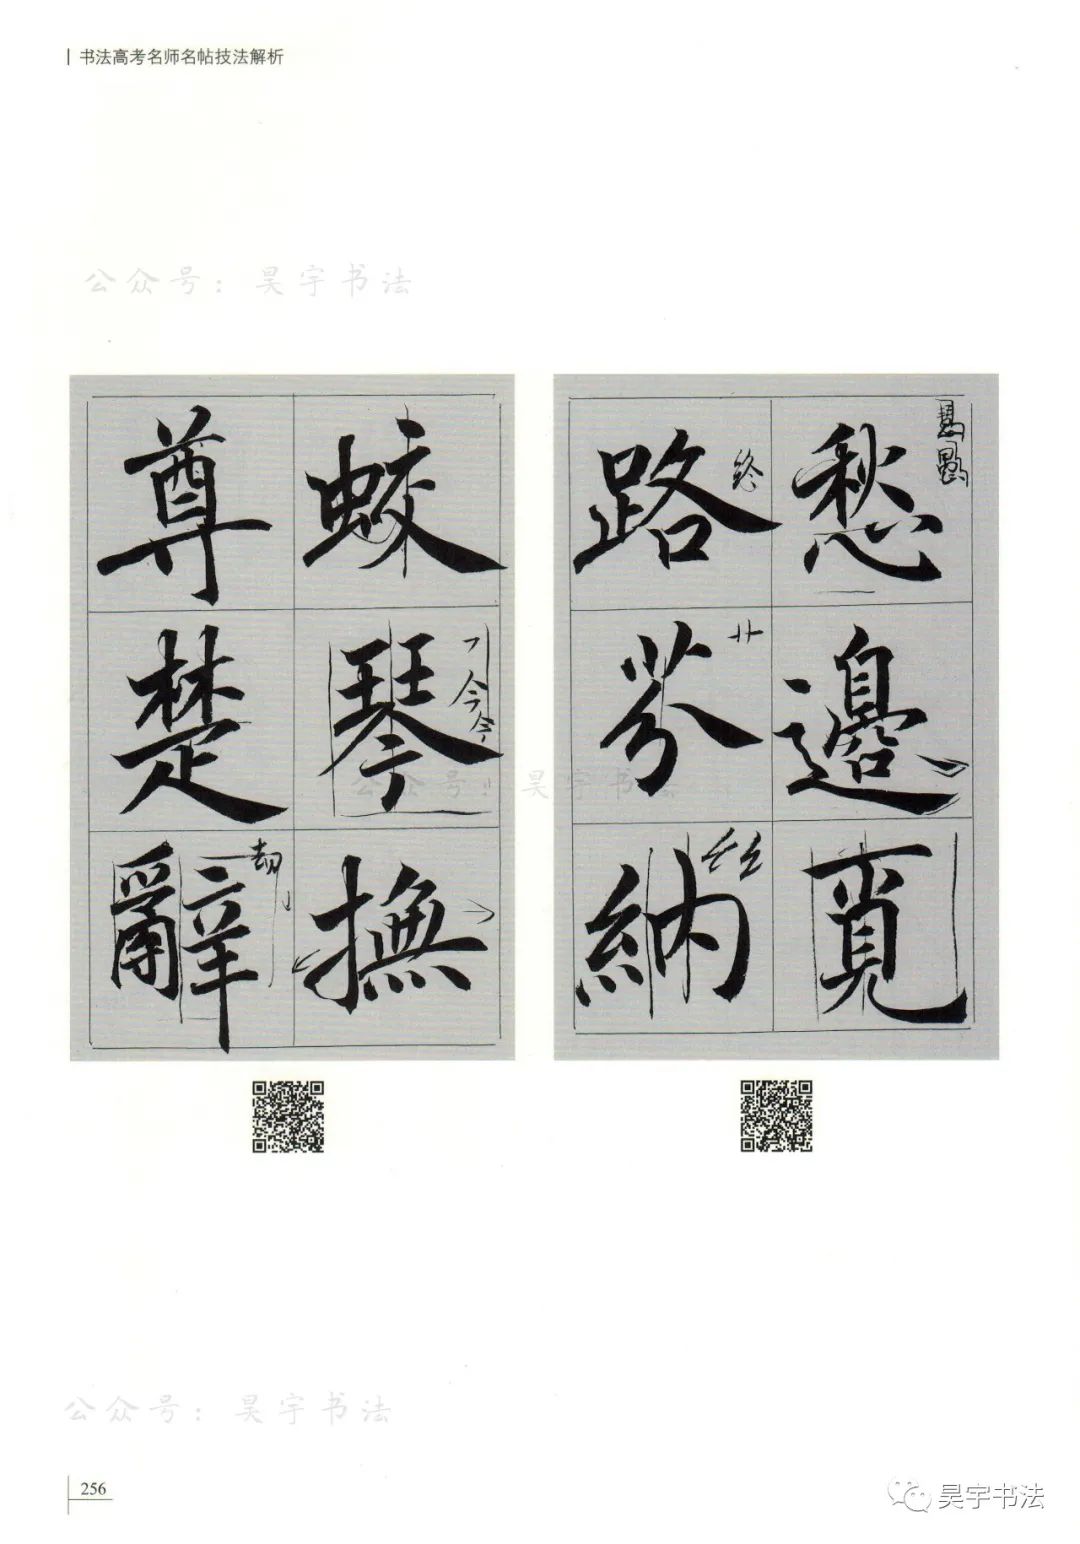 书法高考名师名帖技法解析
公众号：昊宇书法
愁邊覓
路芬納
终
蛟琴撫
今令
尊楚辭
公众号：昊宇书法
公众号：昊宇书法
256
昊宇书法